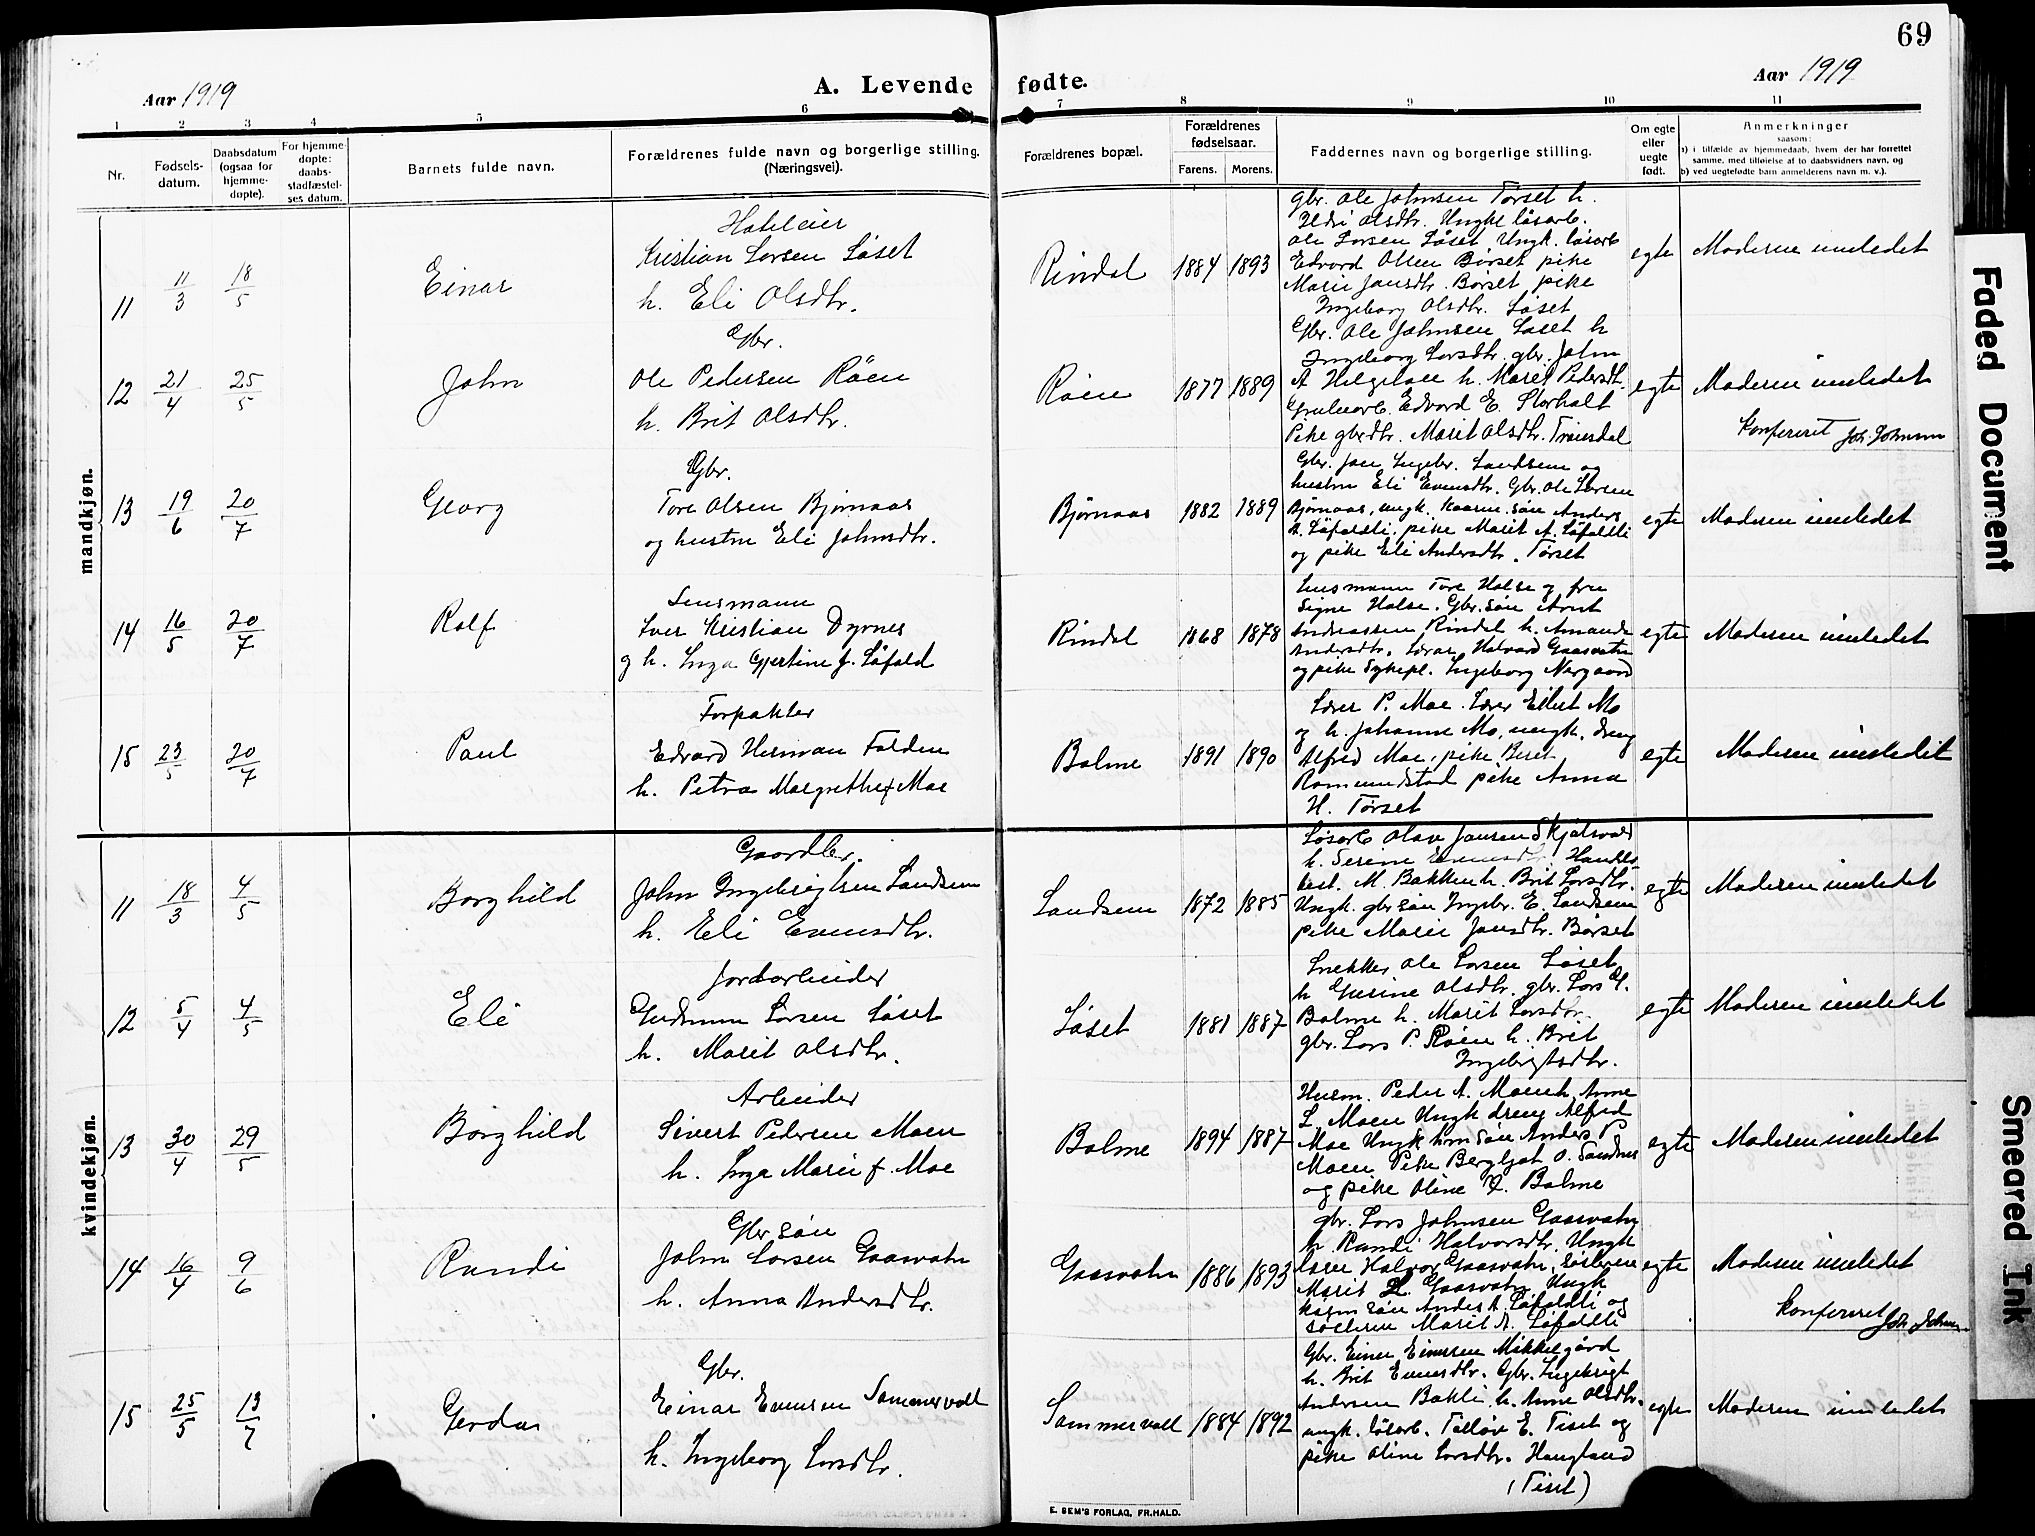 69
Aar 1919
A. Levende fødte.
Aar 1919
1 2 3 4 5 6 7 8 9 10 11
Nr.
Fødsels-
datum.
Daabsdatum
(ogsaa for
hjemme-
døpte).
For hjemme-
døpte:
daabs-
stadfæstel-
ses datum.
Barnets fulde navn.
Forældrenes fulde navn og borgerlige stilling.
(Næringsvei).
Forældrenes bopæl.
Forældrenes
fødselsaar.
Farens. Morens.
Faddernes navn og borgerlige stilling.
Om egte
eller
uegte
født.
Anmerkninger
saasom:
a) i tilfælde av hjemmedaab, hvem der har forrettet
samme, med tilføielse af to daabsvidners navn, og
b) ved uegtefødte barn anmelderens navn m. v.).
mandkjøn.
11 11/3 18/5 Einar
Hoteleier
Kristian Larsen Løset
h. Eli Olsdtr.
Rindal 1884 1893
gbr. Ole Johnsen Tørset h.
Ildri Olsdtr. Ungk. løsarb.
Ole Larsen Løset, Ungk. løsarb
Edvard Olsen Børset pike
Marie Jansdtr. Børset, pike
Ingeborg Olsdtr. Løset
egte Moderen innledet
12 21/4 25/5 John
Gbr.
Ole Pedersen Røen
h. Brit Olsdtr.
Røen 1877 1889
Gbr. Ole Johnsen Løset h
Ingeborg Larsdtr. gbr. John
A Helgetun h. Marit Pedersdtr.
Grubearb. Edvard E. Storholt
Pike gbrdtr. Marit Olsdtr. Trønsdal
egte Moderen innledet
Konfereret Joh. Johnsen
13 19/6 20/7 Georg
Gbr.
Tore Olsen Bjørnaas
og hustru Eli Johnsdtr.
Bjørnaas 1882 1889
Gbr. Jon Ingebr. Landsem og
hustru Eli Evensdtr. Gbr. Ole Larsen
Bjørnaas, ungk. kaarm. søn Anders
A. Løfaldli, pike Marit A. Løfaldli
og pike Eli Andersdtr. Tørset
egte Moderen innledet
14 16/5 20/7 Rolf
Lensmann
Iver Kristian Dyrnes
og h. Inga Gjertine f. Løfald
Rindal 1868 1878
Lensmann Tore Halse og fru
Signe Halse. Gbr. søn Arnt
Andreassen Rindal h. Amanda
Andersdtr. Lærer Halvard Gaasvatn
og pike Sykepl. Ingeborg Nergaard
egte Moderen innledet
15 23/5 20/7 Paul
Forpakter
Edvard Herman Falden
h. Petra Margrethe f. Moe
Bolme 1891 1890
Lærer P. Moe. Lærer Eilert Mo
og h. Johanne Mo, ungk. dreng
Alfred Moe, pike Beret
Romundstad pike Anna
H. Tørset
egte Moderen innledet
kvindekjøn.
11 18/3 4/5 Borghild
Gaardbr.
John Ingebrigtsen Landsem
h. Eli Evensdtr.
Landsem 1872 1885
Løsarb Olav Jansen Skjølsvold
h. Serine Evensdtr. Handels
best. M. Bakken h. Brit Larsdtr.
Ungk. gbr søn Ingebr. E. Landsem
pike Marie Jansdtr. Børset
egte Moderen innledet
12 5/4 4/5 Eli
Jordarbeider
Gudmun Larsen Løset
h. Marit Olsdtr.
Løset 1881 1887
Snekker Ole Larsen Løset
h Gurine Olsdtr. gbr. Lars G.
Bolme h. Marit Larsdtr.
gbr. Lars P. Røen h. Brit
Ingebrigtsdtr.
egte Moderen innledet
13 30/4 29/5 Borghild
Arbeider
Sivert Pedersen Moen
h. Inga Marie f. Moe
Bolme 1894 1887
Husm. Peder A. Moen h. Anne
L. Moen Ungk dreng Alfred
Moe Ungk hm søn Anders P
Moen Pike Bergljot O. Sandnes
og pike Oline L. Bolme
egte Moderen innledet
14 16/4 9/6 Randi
Gbr søn
John Larsen Gaasvatn
h. Anna Andersdtr.
Gaasvatn 1886 1893
gbr. Lars Johnsen Gaasvatn
h. Randi Halvorsdtr. Ungk
lærer Halvor Gaasvatn,
Marit L. Gaasvatn, Ungk
kaarm søn Anders A. Løfaldli og
Marit A. Løfaldli
egte Moderen innledet
Konfereret Joh Johnsen
15 25/5 13/7 Gerda
Gbr.
Einar Evensen Sommervoll
h. Ingeborg Larsdtr.
Sommervoll 1884 1892
Gbr. Einar Einarsen Mikkelgård
h. Brit Evensdtr. Gbr. Ingebrigt
Andersen Bakli h. Anne Olsdtr.
ungk. løsarb. Talløv E. Tiset og
pike Oline Larsdtr. Haugland
(Tiset)
egte Moderen innledet
E. SEM'S FORLAG, FR.HALD.
Faded Document
Smeared Ink